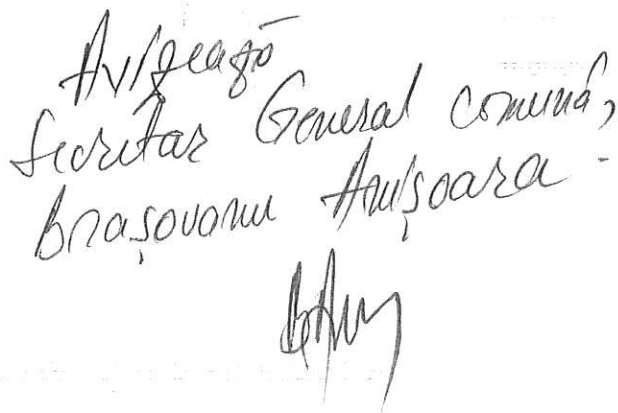 Avizează
Secretar General comună,
Brașovanu Anișoara -